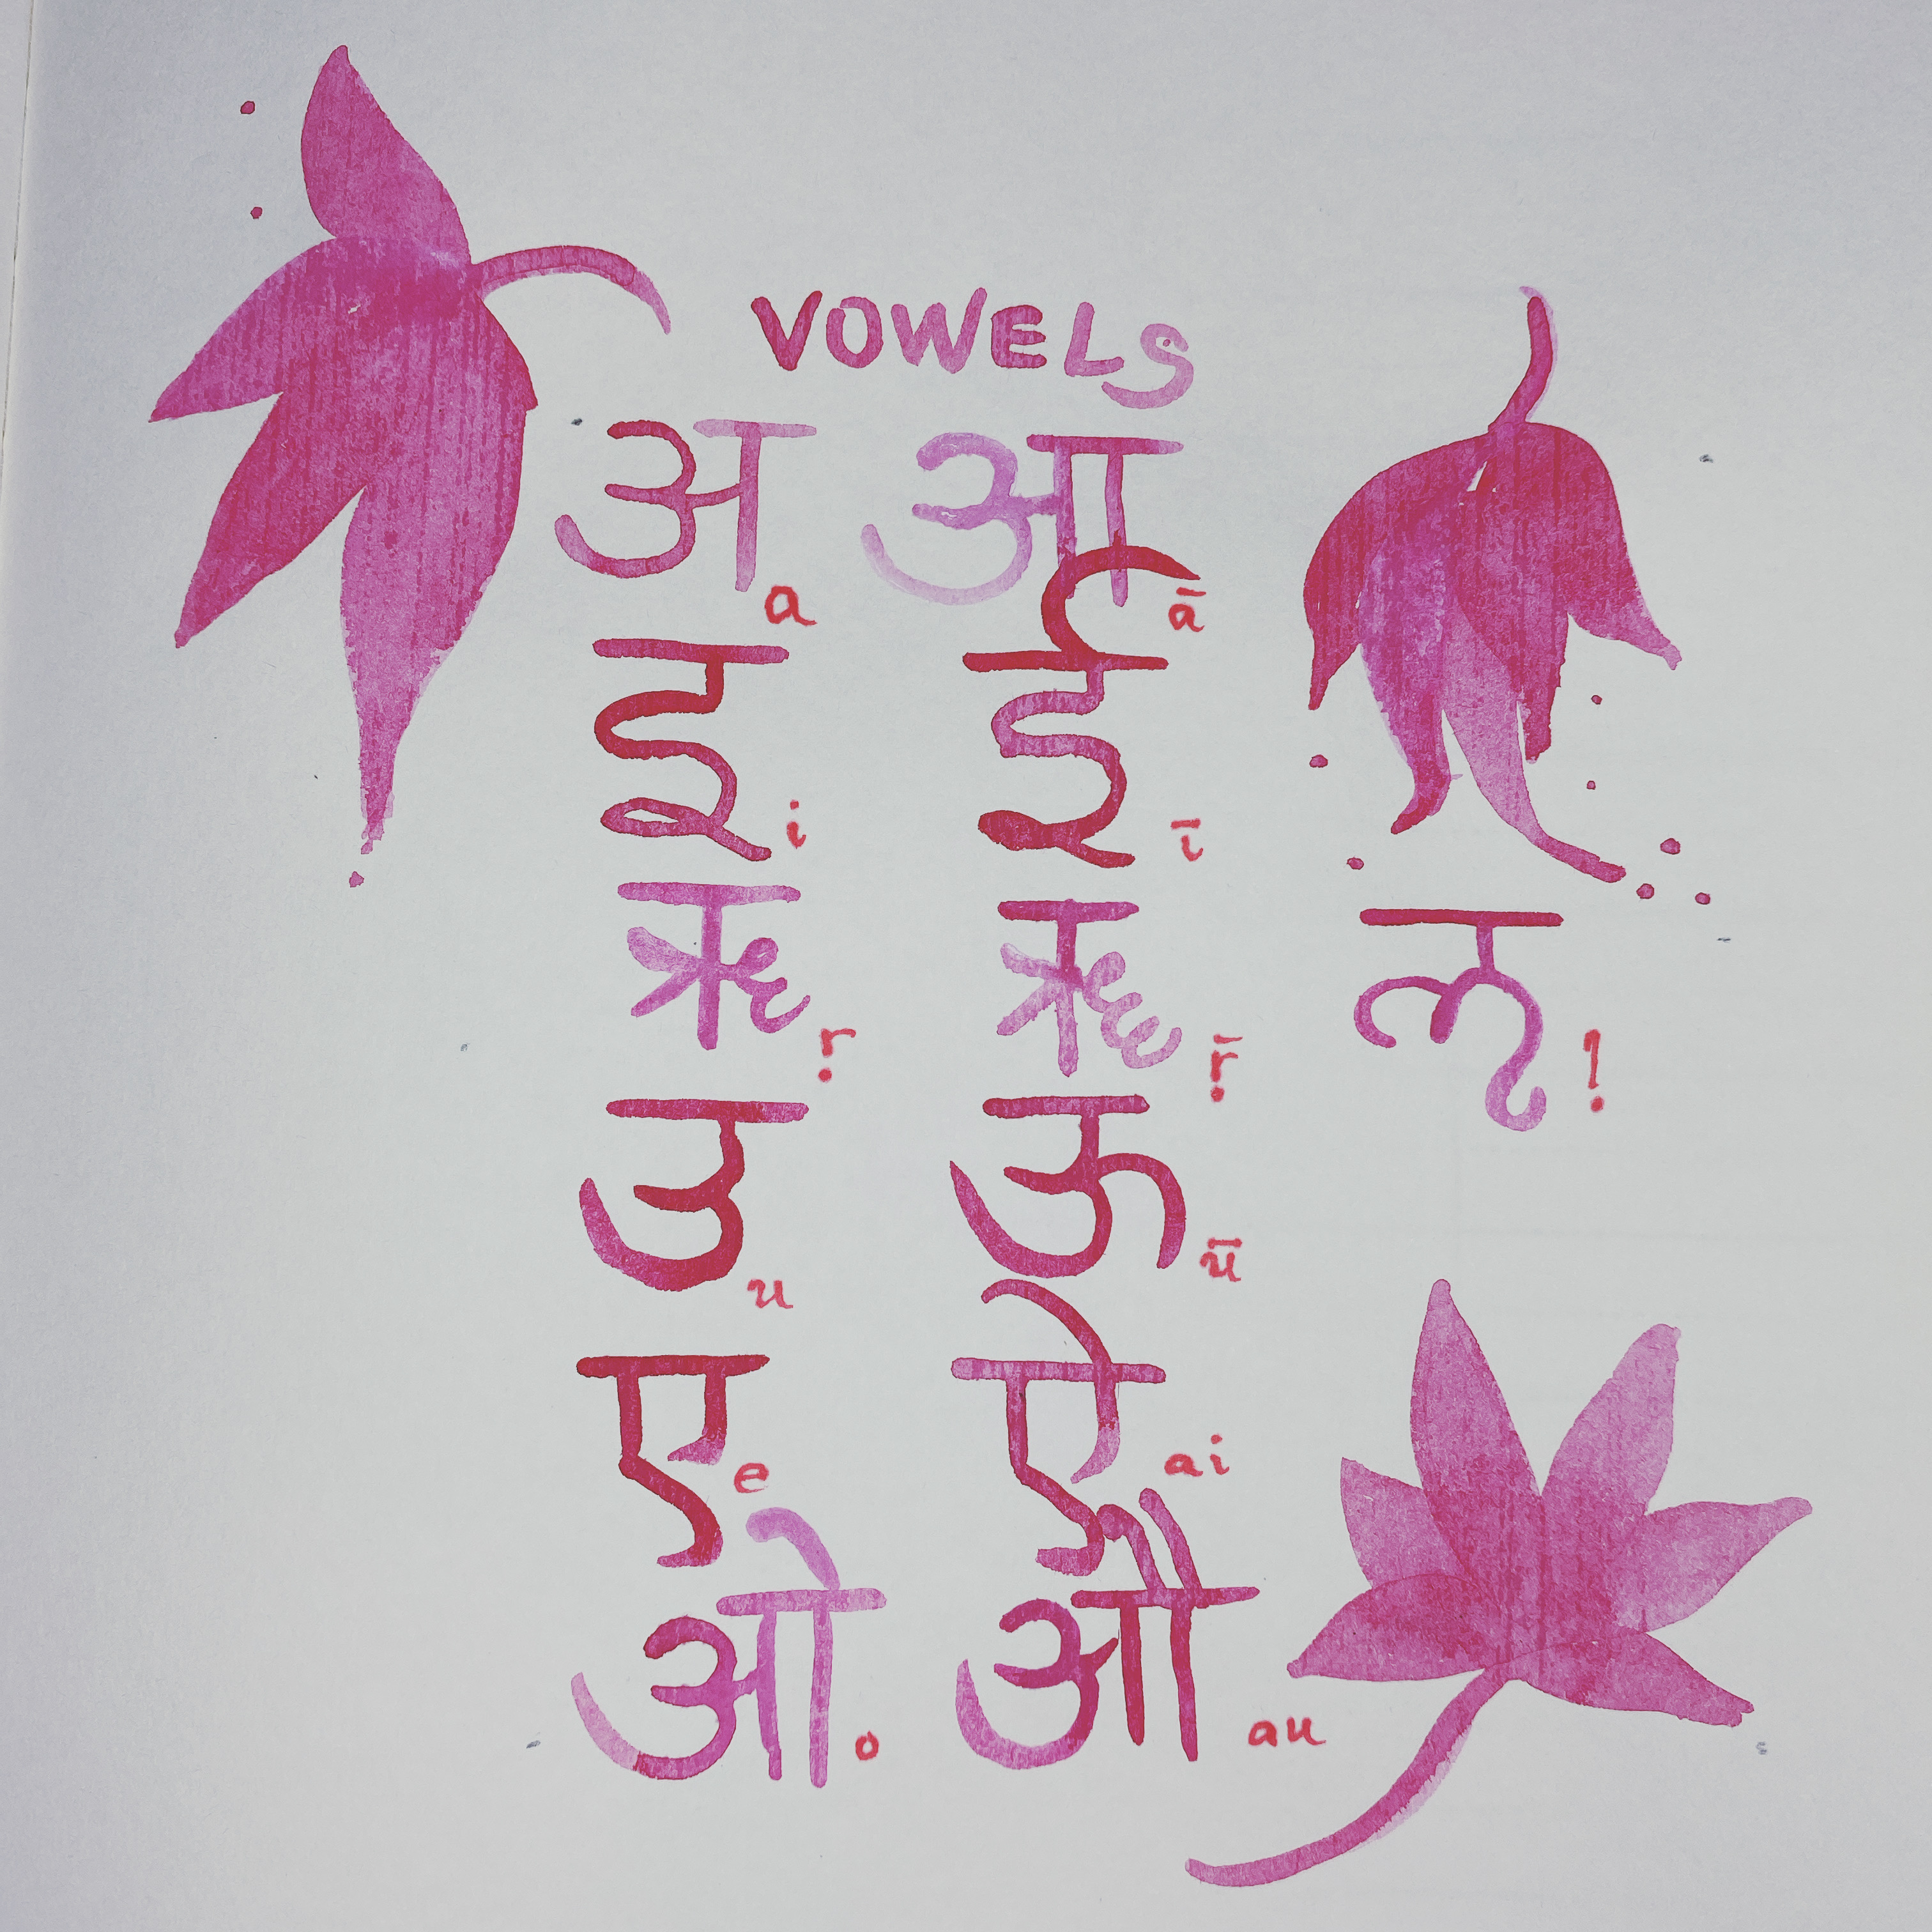 VOWELS
अ a आ ā
इ i ई ī
ऋ ṛ ॠ ṝ ऌ ḷ
उ u ऊ ū
ए e ऐ ai
ओ o औ au